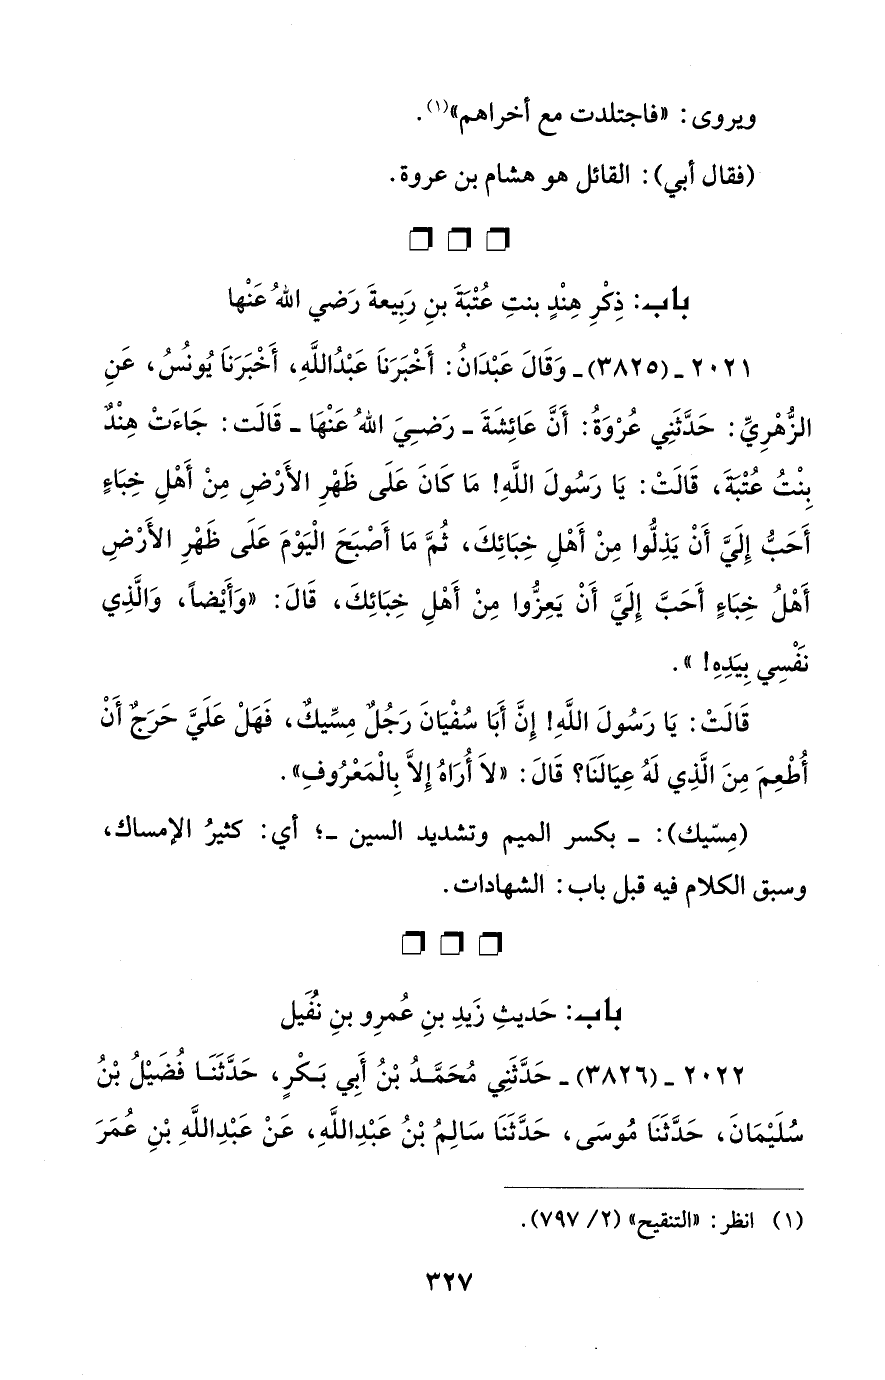 ويروى: «فاجتلدت مع أخراهم»(١).
(فقال أبي): القائل هو هشام بن عروة.
باب: ذِكْرِ هِنْدٍ بنتِ عُتْبَةَ بنِ رَبِيعةَ رَضي اللهُ عَنْها
٢٠٢١ ـ (٣٨٢٥) ـ وَقَالَ عَبْدَانُ: أَخْبَرَنَا عَبْدُاللَّهِ، أَخْبَرَنَا يُونُسُ، عَنِ
الزُّهْرِيِّ: حَدَّثَنِي عُرْوَةُ: أَنَّ عَائِشَةَ ـ رَضِيَ اللهُ عَنْهَا ـ قَالَت: جَاءَتْ هِنْدٌ
بِنْتُ عُتْبَةَ، قَالَتْ: يَا رَسُولَ اللَّهِ! مَا كَانَ عَلَى ظَهْرِ الأَرْضِ مِنْ أَهْلِ خِبَاءٍ
أَحَبُّ إِلَيَّ أَنْ يَذِلُّوا مِنْ أَهْلِ خِبَائِكَ، ثُمَّ مَا أَصْبَحَ الْيَوْمَ عَلَى ظَهْرِ الأَرْضِ
أَهْلُ خِبَاءٍ أَحَبَّ إِلَيَّ أَنْ يَعِزُّوا مِنْ أَهْلِ خِبَائِكَ، قَالَ: «وَأَيْضاً، وَالَّذِي
نَفْسِي بِيَدِهِ! ».
قَالَتْ: يَا رَسُولَ اللَّهِ! إِنَّ أَبَا سُفْيَانَ رَجُلٌ مِسِّيكٌ، فَهَلْ عَلَيَّ حَرَجٌ أَنْ
أُطْعِمَ مِنَ الَّذِي لَهُ عِيَالَنَا؟ قَالَ: «لاَ أُرَاهُ إِلاَّ بِالْمَعْرُوفِ».
(مِسِّيك): ـ بكسر الميم وتشديد السين ـ؛ أي: كثيرُ الإمساك،
وسبق الكلام فيه قبل باب: الشهادات.
باب: حَديثِ زَيدِ بنِ عُمرِو بنِ نُفَيل
٢٠٢٢ ـ (٣٨٢٦) ـ حَدَّثَنِي مُحَمَّدُ بْنُ أَبِي بَكْرٍ، حَدَّثَنَا فُضَيْلُ بْنُ
سُلَيْمَانَ، حَدَّثَنَا مُوسَى، حَدَّثَنَا سَالِمُ بْنُ عَبْدِاللَّهِ، عَنْ عَبْدِاللَّهِ بْنِ عُمَرَ
(١) انظر: «التنقيح» (٢/ ٧٩٧).
٣٢٧